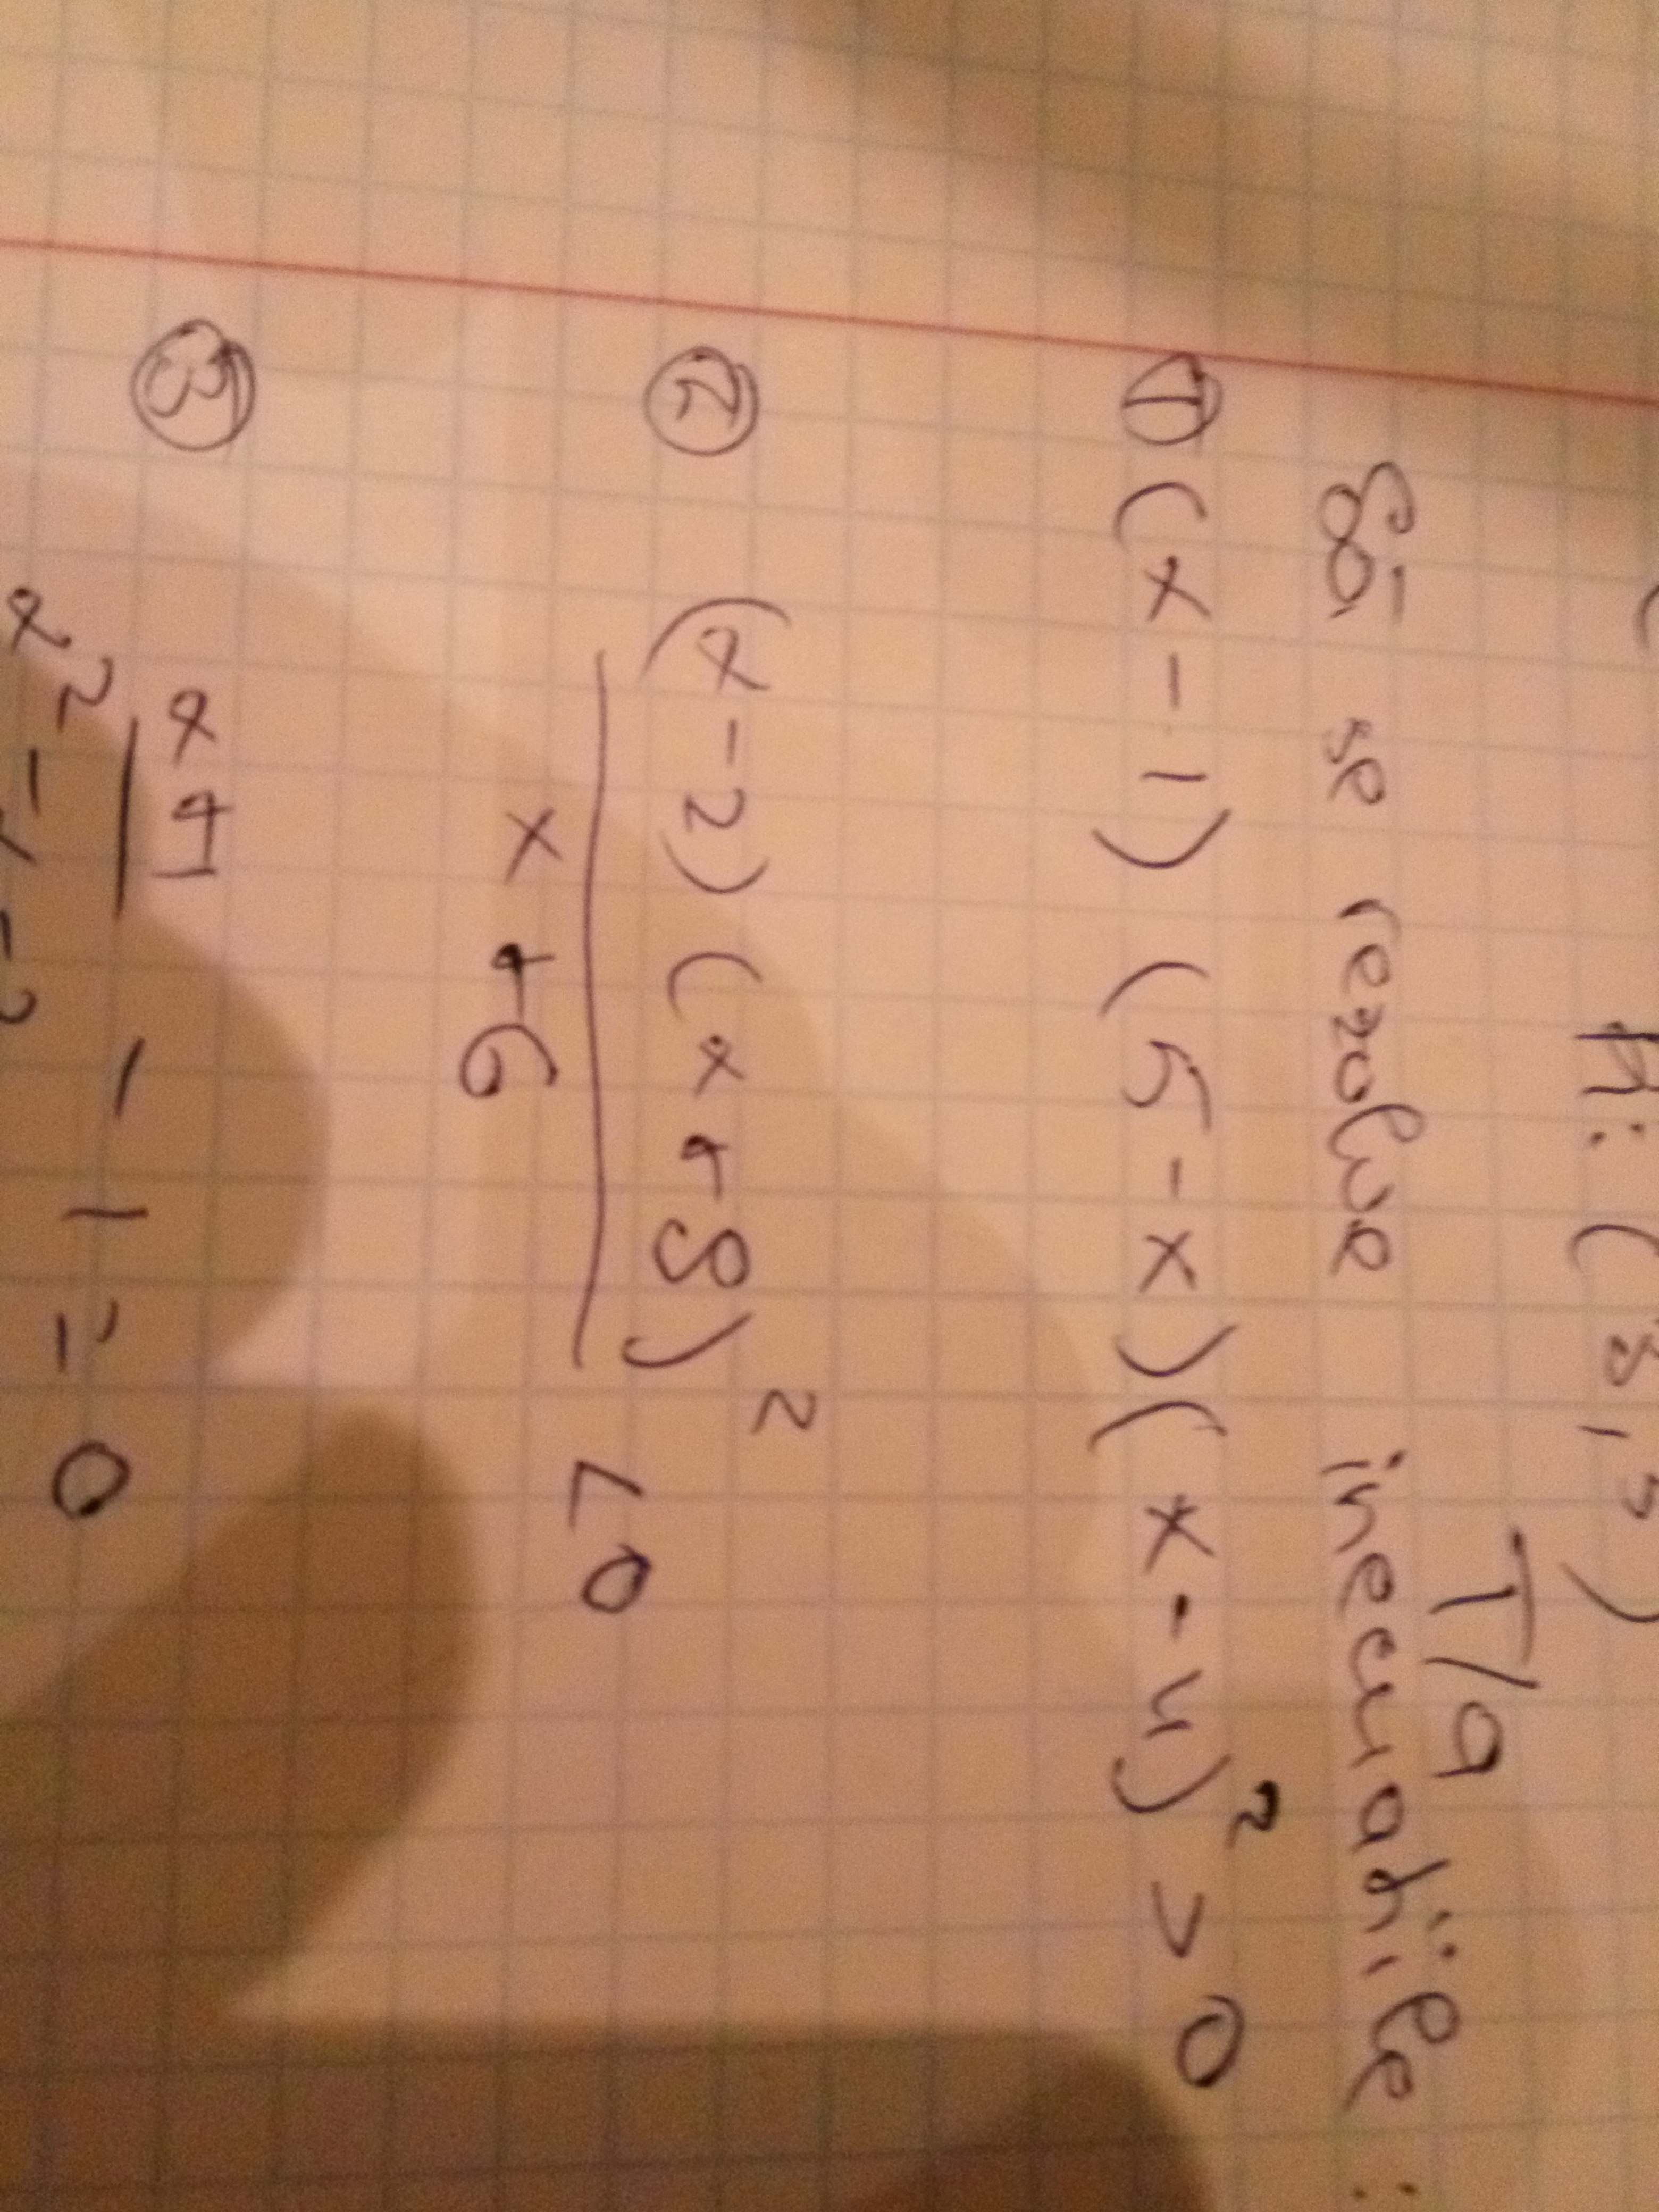 A: (3,5)
T/a
Să se rezolve inecuațiile:
① (x-1) (5-x)(x-4)² > 0
② (x-2)(x+8)²
x+6
< 0
③ x+1
- 1 = 0
x²